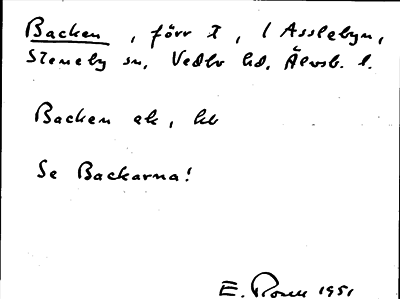 Backen, förr t, l Asslebyn,
Steneby sn, Vedbo hd, Älvsb. l.
Backen ek, hb
Se Backarna!
E. Rosell 1951